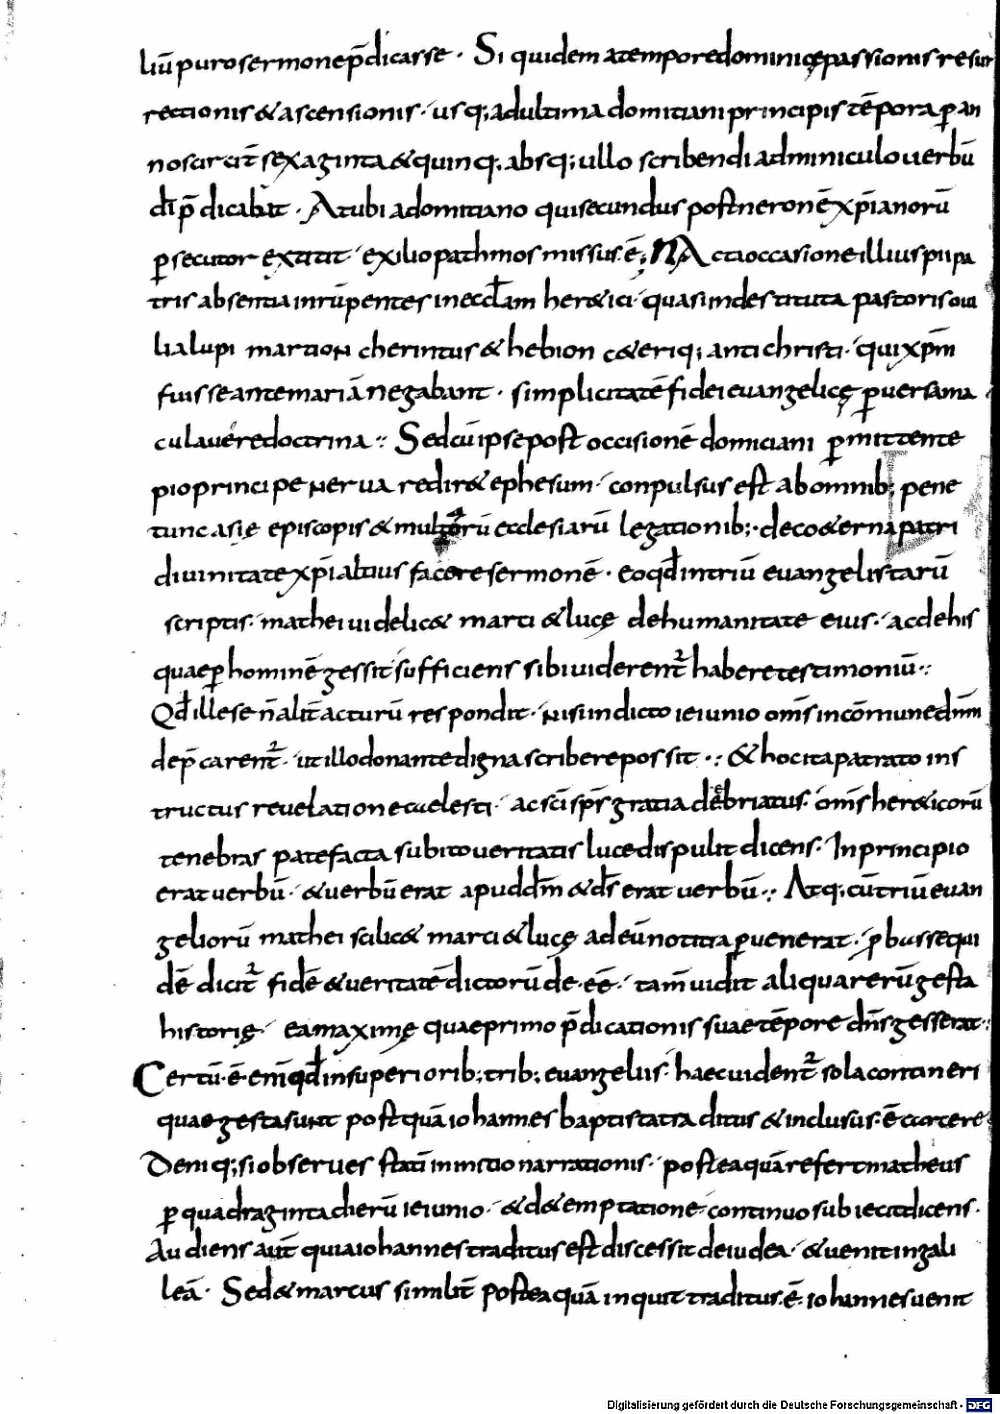 liū puro sermone p̄dicasse · Si quidem a tempore dominicę passionis resur
rectionis & ascensionis · usq; ad ultima domitiani principis tēpora ꝑ an
nos circit̄ sexaginta & quinq; absq; ullo scribendi adminiculo uerbū
dī p̄dicabat · At ubi a domitiano qui secundus post neronē xp̄ianorū
ꝑsecutor extitit · exilio pathmos missus ·ē; NActa occasione illius pii pa
tris absentia inrūpentes in eccl̄am her&ici · quasi in destituta pastoris oui
lia lupi martion cherintus & hebion c&eriq; antichristi · qui xp̄m
fuisse ante mariā negabant · simplicitatē fidei euangelicę ꝑuersa ma
culauére doctrina ·: Sed cū ipse post occisionē domiciani ꝑmittente
pio principe nerua redir& ephesum · conpulsus est ab omnib; pene
tunc asię episcopis & multorū ecclesiarū legationib; · de co&erna patri
diuinitate xp̄i altius facere sermonē · eo qđ in triū euangelistarū
scriptis · mathei uidelic& marci & lucę de humanitate eius · ac de his
quae ꝑ hominē gessit sufficiens sibi uiderent̄ habere testimoniū ·:
Qđ ille se n̄ alit̄ acturū respondit · nisi indicto ieiunio om̄s in cōmune dn̄m
dep̄carent̄ · ut illo donante digna scribere possit ·: & hoc ita patrato ins
tructus reuelatione cęlesti · ac sc̄i sp̄s gratia debriatus · om̄s her&icorū
tenebras patefacta subito ueritatis luce dispulit dicens · In principio
erat uerbū · & uerbū erat apud dm̄ & ds̄ erat uerbū ·: Atq; cū triū euan
geliorū mathei scilic& marci & lucę ad eū notitia ꝑuenerat · ꝓbasse qui
dē dicit̄ fidē & ueritatē dictorū de·eē · tam̄ uidit aliqua rerū gesta
historię · ea maximę quae primo p̄dicationis suae tēpore dn̄s gesserat ·:
Certū·ē·eni qđ in superiorib; trib; euangeliis · haec uident̄ sola contineri
quae gesta sunt postquā iohannes baptista traditus & inclusus ·ē carcere
Deniq; si obserues statī in initio narrationis · posteaquā refert matheus
ꝑ quadraginta dierū ieiunio · & d& emptatione continuo subiecit dicens ·
Audiens aut̄ quia iohannes traditus est discessit de iudea · & uenit in gali
leā · Sed & marcus similit̄ posteaquā inquit traditus ·ē · iohannes uenit
Digitalisierung gefördert durch die Deutsche Forschungsgemeinschaft - DFG